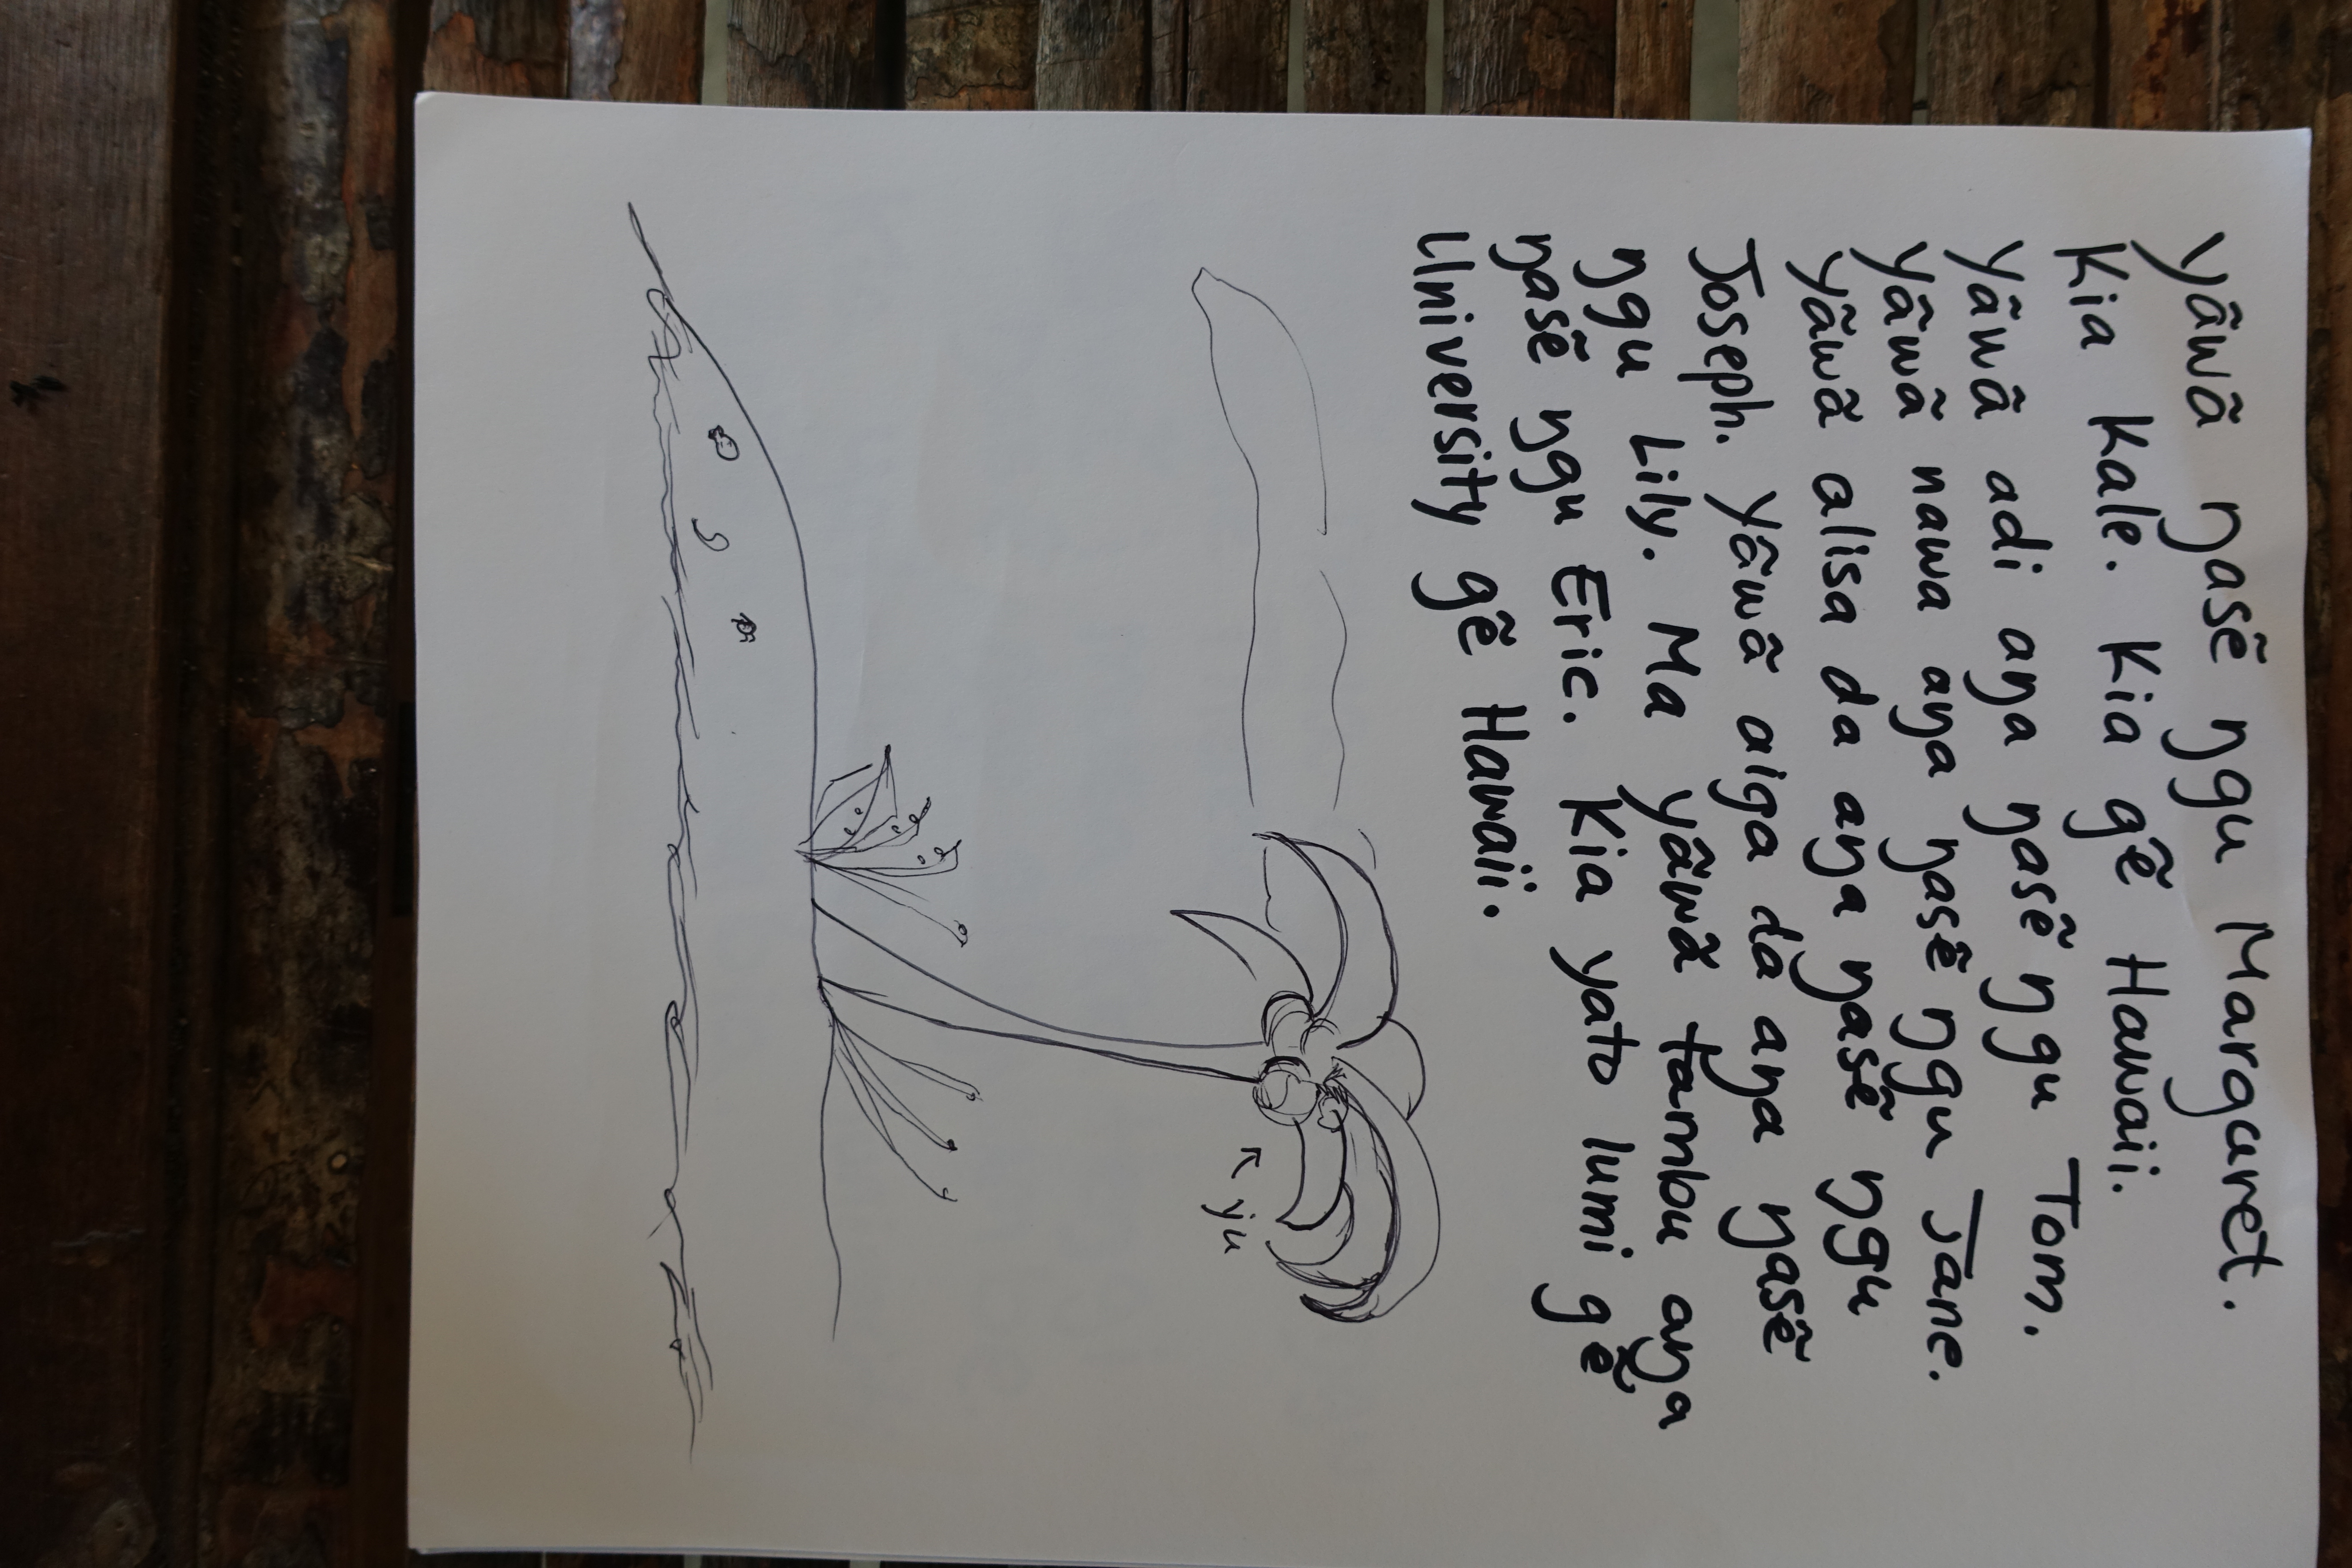 yâwâ ŋasẽ ŋgu Margaret.
Kia kale. Kia gẽ Hawaii.
yâwâ adi aŋa ŋasẽ ŋgu Tom.
yâwâ nawa aŋa ŋasẽ ŋgu Jane.
yâwâ alisa da aŋa ŋasẽ ŋgu
Joseph. yâwâ aiga da aŋa ŋasẽ
ŋgu Lily. Ma yâwâ tambu aŋa
ŋasẽ ŋgu Eric. Kia yato lumi gẽ
University gẽ Hawaii.
yu